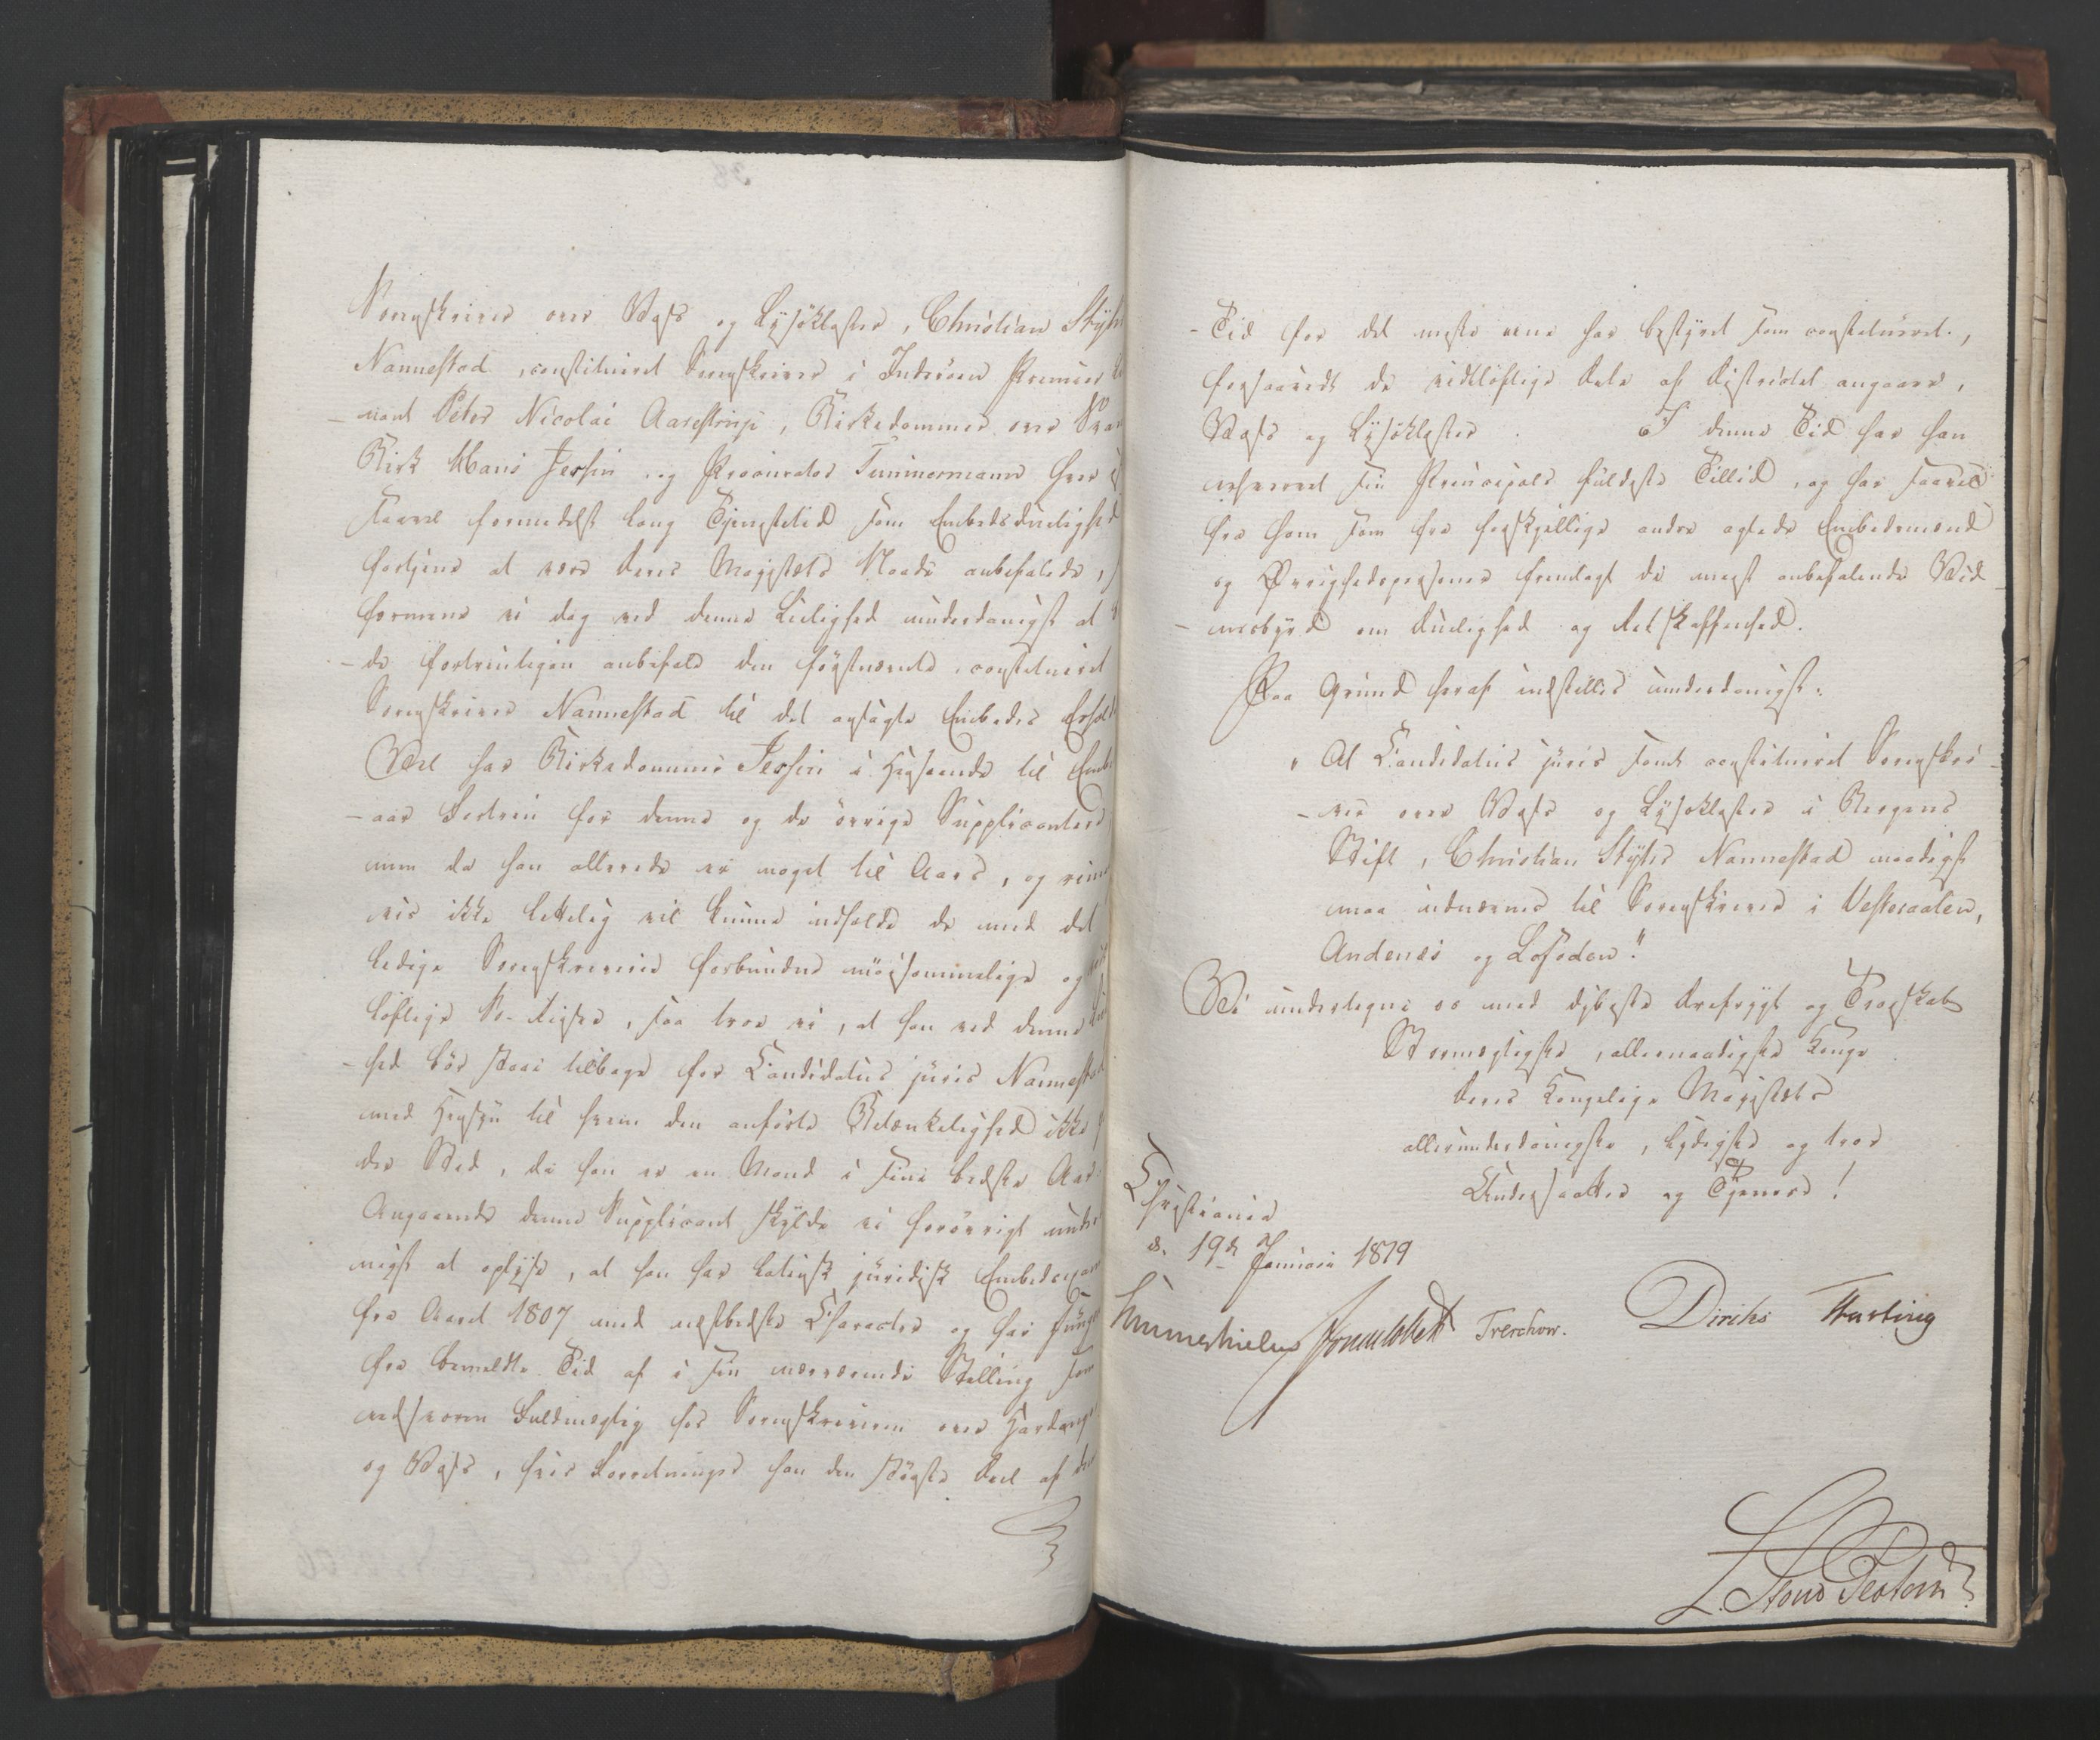 Sorenskriver over Voss og Lysekloster, Christian Stÿh
Nannestad, constitueret Sorenskriver i Inderöen Premier
-nant Peter Nicolai Aarestrup, Birkedommer over
Birk Hans Jersin, og Procurator Timmermann hver
saavel formedelst lang Tjenestetid som Embedsduelighed
fortjene at være Deres Majestæts Naade anbefalede,
formene vi dog ved denne Leilighed underdanigst at
-de fortrinligen anbefale den förstnævnte, constitueret
Sorenskriver Nannestad til det ansögte Embedes Erhol
Vel har Birkedommer Jersin i Henseende til Embe
-aar Fortrin for denne og de övrige Supplicantere,
men da han allerede er noget til Aars, og
-viis ikke letteligen vil kunne udholde de med det
ledige Sorenskriverie forbundne möisommelige og
löftige Reiser, saa troe vi, at han ved denne
-hed bör staae tilbage for Candidatus juris Nannestad
med Hensyn til hvem den anförte Betænkelighed ikke
der Sted, da han er en Mand i sine bedste Aar.
Angaaende denne Supplicant skylde vi forövrigt under
nigst at oplyse, at han har latinsk juridisk Embedsexam
fra Aaret 1807 med næstbedste Character og har
fra bemeldte Tid af i sin nærværende Stilling som
edsvoren Fuldmægtig hos Sorenskriveren over Hardang
og Voss, hvis Forretninger han den störste Deel af den
-Tid for det meste ene har bestyret som constitueret,
forsaavidt de vidtlöftige Dele af Districtet angaaer,
Voss og Lysekloster. I denne Tid har han
erhvervet sin Principals fuldeste Tillid, og har saavel
fra ham som fra forskjellige andre agtede Embedsmænd
og Övrighedspersoner fremlagt de meest anbefalende Vid-
-nesbyrd om Duelighed og Retskaffenhed.
Paa Grund heraf indstilles underdanigst:
"At Candidatus juris samt constitueret Sorenskri-
-ver over Voss og Lysekloster i Bergens
Stift, Christian Stÿhr Nannestad naadigst
maa udnævnes til Sorenskriver i Vesteraalen,
Andenæs og Lofoden."
Vi undertegne os med dybeste Ærefrygt og Troeskab
Stormægtigste, allernaadigste Konge
Deres Kongelige Majestæts
allerunderdanigste, lydigste og troe
Undersaatter og Tjenere!
Christiania
d. 19de Januari 1819
Hummerhielm Sommerfeldt Treschow. Diriks Hasting
L. Stoud Platou